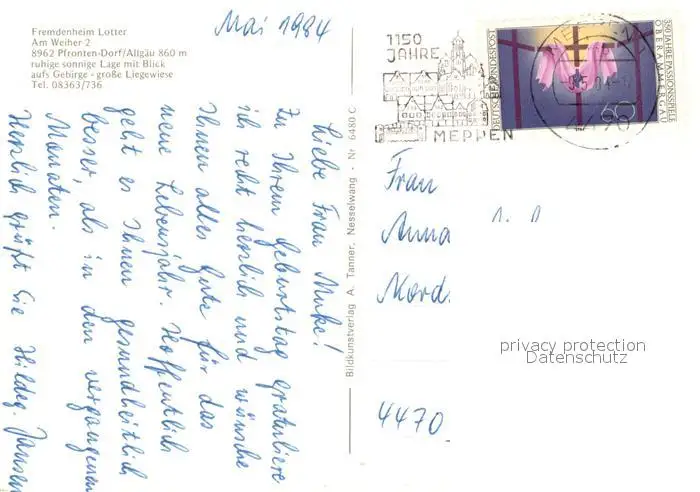 Fremdenheim Lotter
Am Weiher 2
8962 Pfronten-Dorf/Allgäu 860 m
ruhige sonnige Lage mit Blick
aufs Gebirge - große Liegewiese
Tel. 08363/736
Mai 1984
Liebe Frau Muke!
Zu Ihrem Geburtstag gratuliere
ich recht herzlich und wünsche
Ihnen alles Gute für das
neue Lebensjahr. Hoffentlich
geht es Ihnen gesundheitlich
besser, als in den vergangenen
Monaten.
Herzlich grüßt Sie Hildeg. Jansen
Bildkunstverlag A. Tanner, Nesselwang - Nr. 6480 C
1150
JAHRE
MEPPEN
350 JAHRE PASSIONSSPIELE
OBERAMMERGAU
DEUTSCHE BUNDESPOST
60
Frau
Anna
Nord
4470
privacy protection
Datenschutz